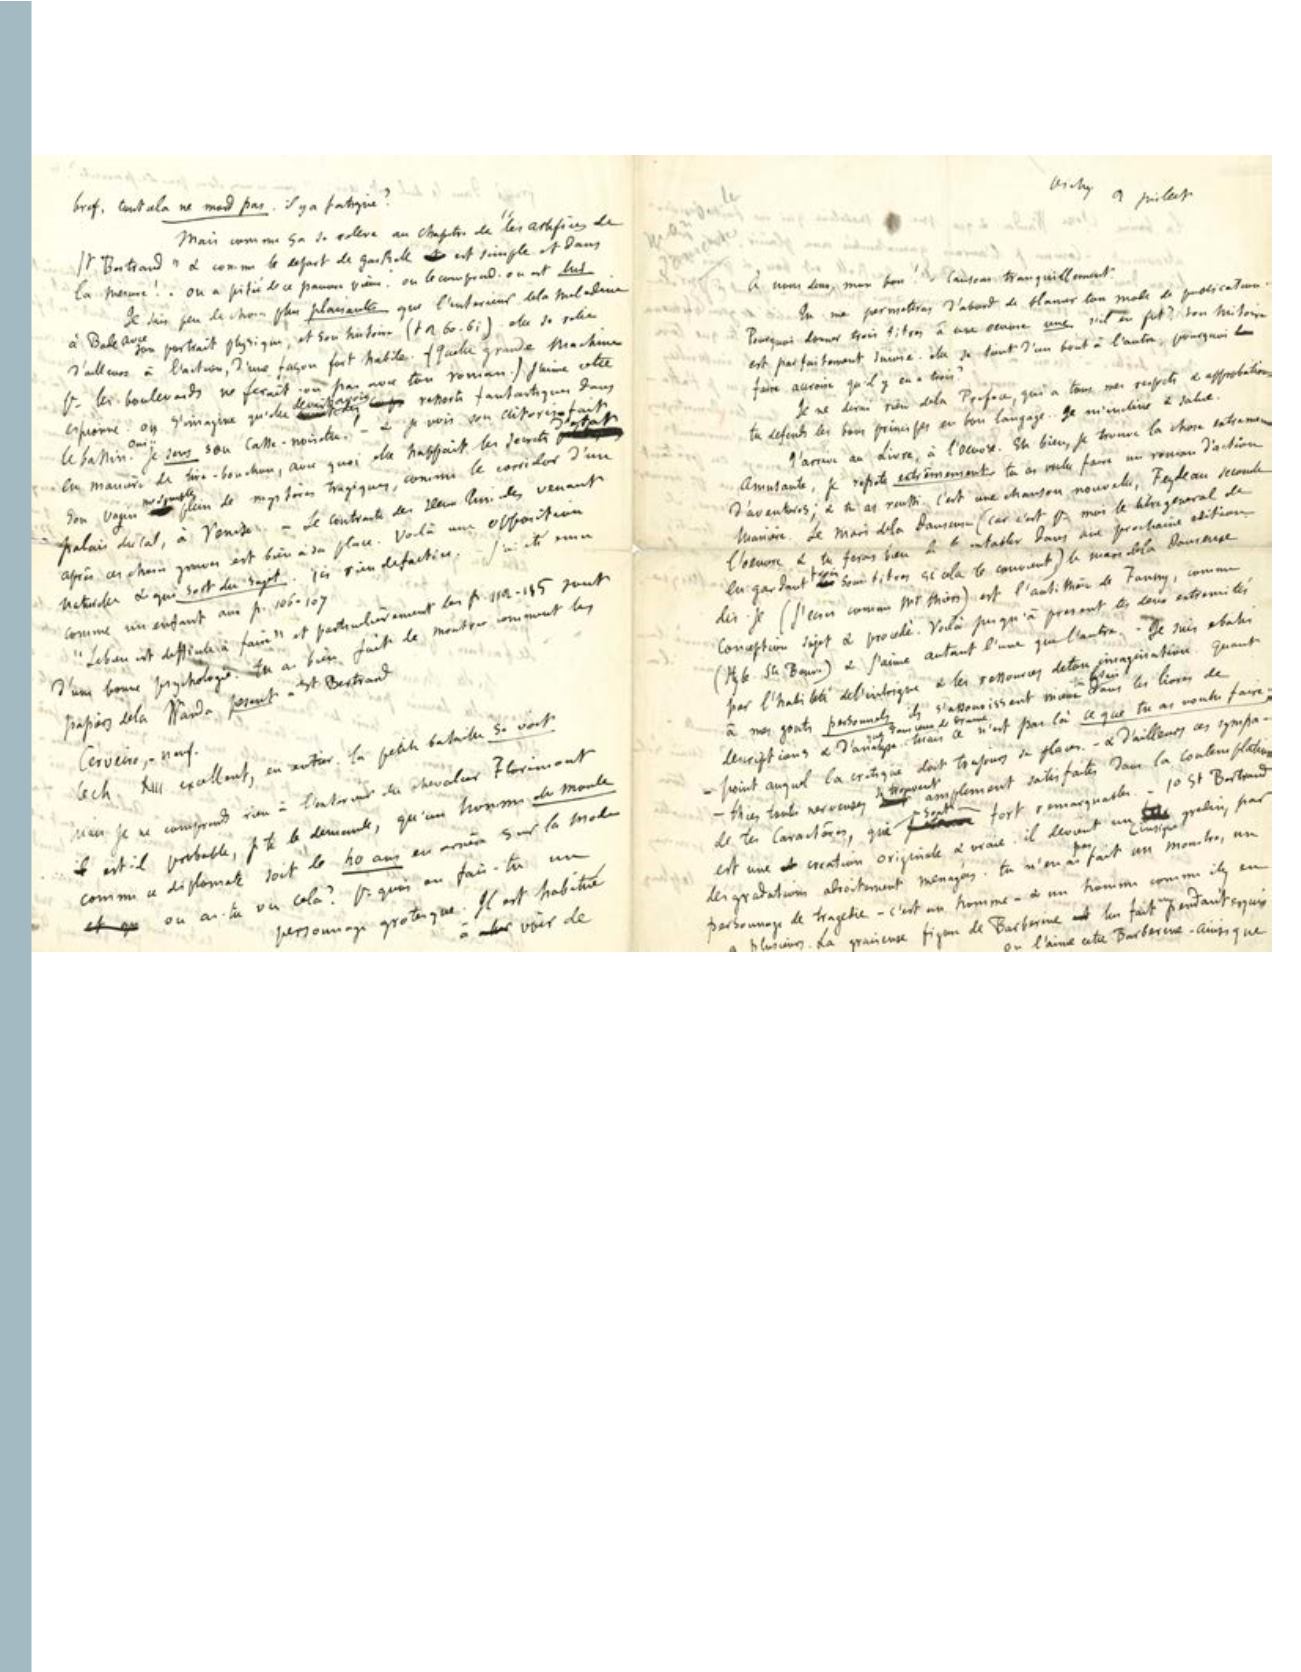 bref, tout cela ne mord pas. il y a fatigue?
Mais comme ça se relève au chapitre de "les artifices de
St Bertrand" & comme le départ de est simple et dans
la mesure! - on a pitié de ce pauvre vieux. on le comprend. on est lui
Je sais peu de choses plus plaisantes que l'intérieur de la
à Bade avec son portrait physique, et son histoire (t 2 60-61). elle se relie
d'ailleurs à l'action, d'une façon fort habile. (Quelle grande machine
pr les boulevards ne ferait-on pas avec ton roman.) J'aime cette
espionne. on s'imagine qu'elle devait avoir des ressorts fantastiques dans
le bassin. oui je sens son casse-noisette. - & je vois son clitoris fait
en manière de tire-bouchon, avec quoi elle happait les secrets d'état
Son vagin plein de mystères tragiques, comme le corridor d'un
palais ducal, à Venise. - Le contraste des venant
après ces choses graves est bien à sa place. Voilà une opposition
naturelle & qui sort du sujet. ici rien de factice. J'ai été ému
comme un enfant aux p. 106-107
"Le bien est difficile à faire" et particulièrement les p. 112-115 sont
d'une bonne psychologie. Tu as bien fait de montrer comment les
papiers de la Wanda pesent à St Bertrand
Cerveiro, - neuf.
Le ch. XIII excellent, en entier. la petite bataille se voit
mais je ne comprends rien à l'intérieur du chevalier Florimont
est-il probable, je te le demande, qu'un homme du monde
comme ce diplomate soit de 40 ans en arrière sur la mode
où as-tu vu cela? pr quoi en fais-tu un
personnage grotesque. Il est habitué
à voir de
Vichy 9 juillet
À nous deux, mon bon! & Causons tranquillement.
Tu me permettras d'abord de blâmer ton mode de publication.
Pourquoi donner trois titres à une oeuvre une s'il en fut? ton histoire
est parfaitement suivie. elle se tient d'un bout à l'autre, pourquoi
faire accroire qu'il y en a trois?
Je ne dirai rien de la Préface, qui a tous mes respects & approbations
tu défends les bons principes en bon langage. Je m'incline & salue.
J'arrive au Livre, à l'oeuvre. Eh bien, je trouve la chose extrêmement
Amusante, je répète extrêmement. tu as voulu faire un roman d'action
d'aventures; & tu as réussi. c'est une chanson nouvelle, Feydeau seconde
Manière. Le Mari de la Danseuse (car c'est pr moi le titre général de
l'oeuvre & tu feras bien de le rétablir dans une prochaine édition
en gardant trois sous titres si cela te convient) le mari de la Danseuse
dis-je (J'écris comme Mr Thiers) est l'antithèse de Fanny, comme
Conception sujet & procédé. Voilà jusqu'à présent tes deux extrémités
(style Ste Beuve) & j'aime autant l'une que l'autre. - Je suis ébahi
par l'habileté de l'intrigue & les ressources de ton imagination. Quant
à mes goûts personnels ils s'assouvissent mieux dans les livres de
descriptions & d'analyse. Mais ce n'est pas là ce que tu as voulu faire.
- point auquel la critique doit toujours se placer. - & d'ailleurs ces sympa-
- thies toutes nerveuses se trouvent amplement satisfaites dans la contemplation
de tes Caractères, qui sont fort remarquables. - 1o St Bertrand
est une création originale & vraie. il devient un gredin, par
des gradations adroitement ménagées. tu n'en as pas fait un monstre, un
personnage de tragédie - c'est un homme - & un homme comme il y en
a plusieurs. La gracieuse figure de Barberine lui fait pendant exquis
on l'aime cette Barberine - ainsi que